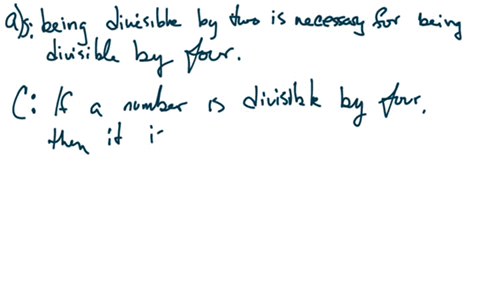 a) S: being divisible by two is necessary for being
divisible by four.
C: If a number is divisible by four,
then it i